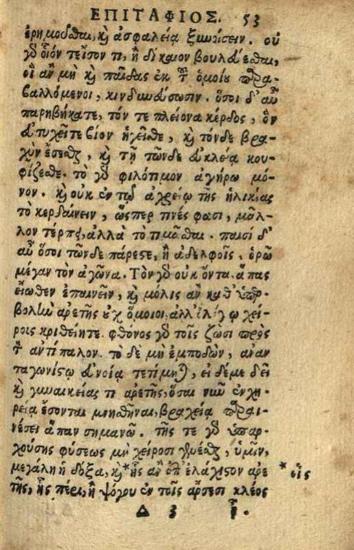 ΕΠΙΤΑΦΙΟΣ. 53
ἐρημοῦσθαι, καὶ ἀσφαλείᾳ ξυνοίσειν. οὐ
γὰρ οἷόν τε ἶσόν τι, ἢ δίκαιον βουλεύεσθαι,
οἳ ἂν μὴ καὶ παῖδας ἐκ τοῦ ὁμοίου παρα
βαλλόμενοι, κινδυνεύωσιν. ὅσοι δ' αὖ
παρηβήκατε, τόν τε πλείονα κέρδος, ὃν
εὐτυχεῖτε βίον ἡγεῖσθε, καὶ τόνδε βρα
χὺν ἔσεσθαι, καὶ τῇ τῶνδε εὐκλείᾳ κου
φίζεσθε. τὸ γὰρ φιλότιμον ἀγήρω μό
νον. καὶ οὐκ ἐν τῷ ἀχρείῳ τῆς ἡλικίας
τὸ κερδαίνειν, ὥσπερ τινές φασι, μᾶλ
λον τέρπει, ἀλλὰ τὸ τιμᾶσθαι. παισὶ δ'
αὖ ὅσοι τῶνδε πάρεστε, ἢ ἀδελφοῖς, ὁρῶ
μέγαν τὸν ἀγῶνα. Τὸν γὰρ οὐκ ὄντα ἅπας
εἴωθεν ἐπαινεῖν, καὶ μόλις ἂν καθ' ὑπερ
βολὴν ἀρετῆς οὐχ ὅμοιοι, ἀλλ' ὀλίγῳ χεί
ροις κριθεῖητε. φθόνος γὰρ τοῖς ζῶσι πρὸς
τὸ ἀντίπαλον. τὸ δὲ μὴ ἐμποδὼν, ἀναν
ταγωνίστῳ εὐνοίᾳ τετίμηται, εἰ δέ με δεῖ
καὶ γυναικείας τι ἀρετῆς, ὅσαι νῦν ἐν χη
ρείᾳ ἔσονται μνησθῆναι, βραχείᾳ παραι
νέσει ἅπαν σημανῶ. τῆς τε γὰρ ὑπαρ
χούσης φύσεως μὴ χείροσι γενέσθαι, ὑμῖν,
μεγάλη ἡ δόξα, καὶ * ἧς ἂν ἐπ' ἐλάχιστον ἀρε * εἷς
τῆς, ἧς πέρι, ἢ ψόγου ἐν τοῖς ἄρσεσι κλέος
Δ 3 ᾖ.